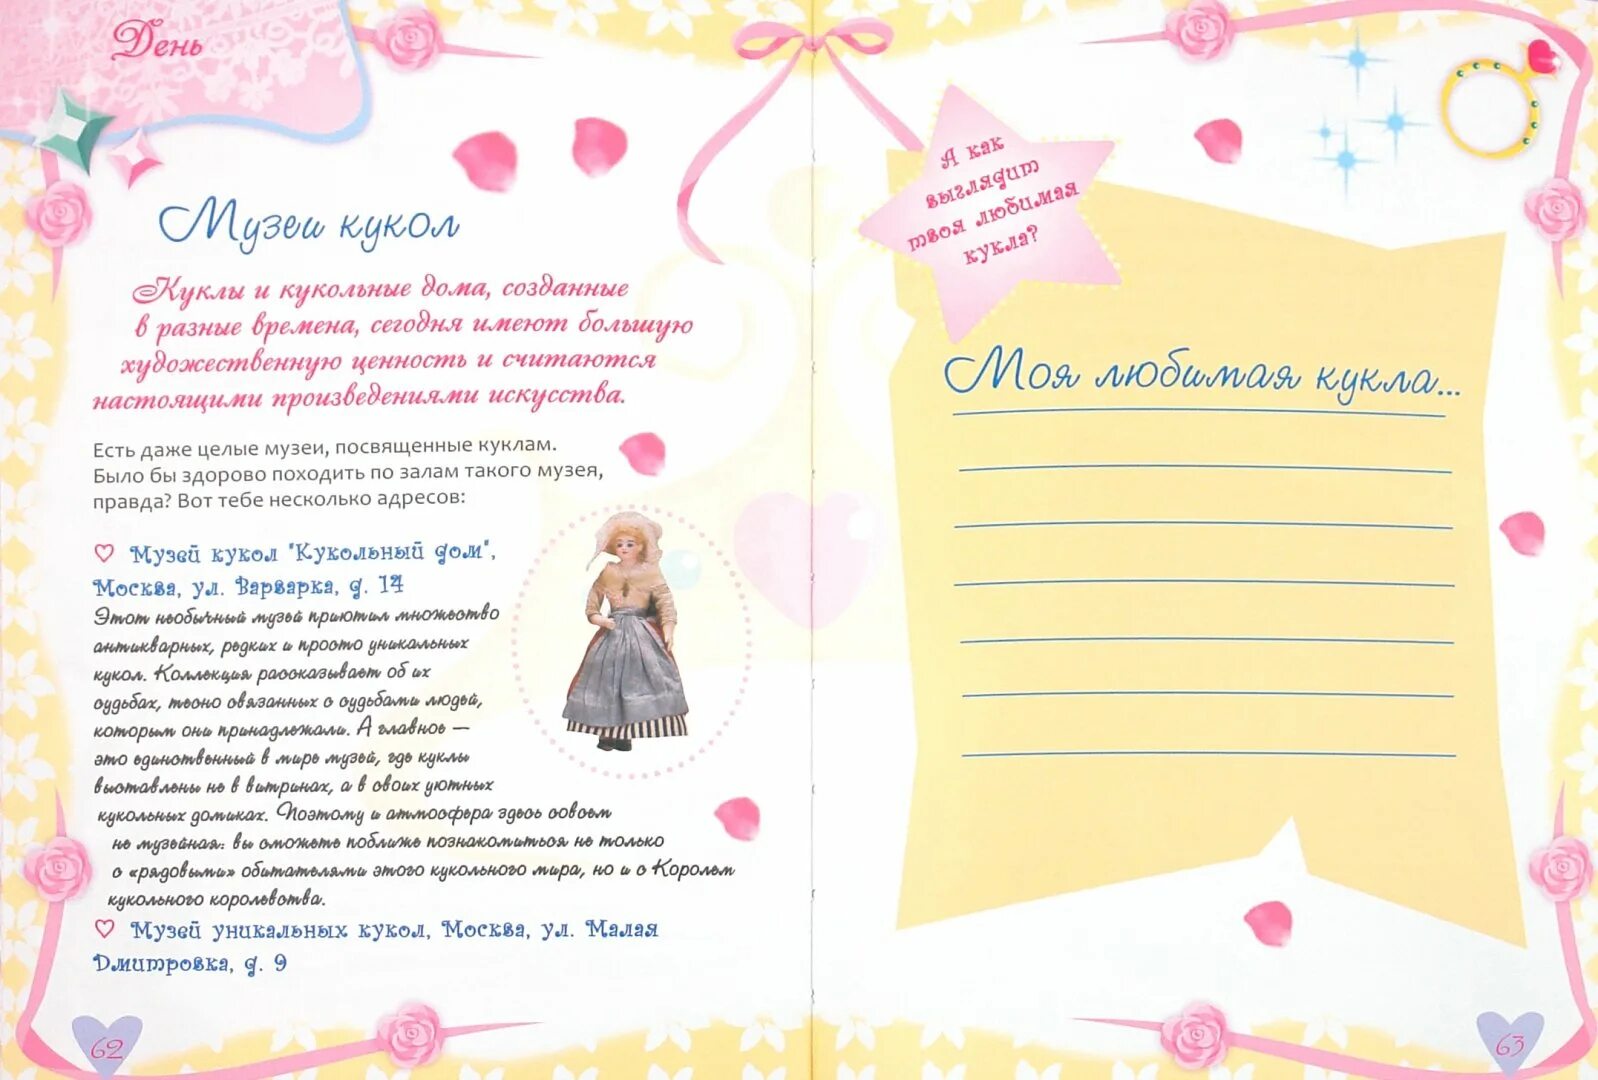 День
Музеи кукол
Куклы и кукольные дома, созданные
в разные времена, сегодня имеют большую
художественную ценность и считаются
настоящими произведениями искусства.
Есть даже целые музеи, посвященные куклам.
Было бы здорово походить по залам такого музея,
правда? Вот тебе несколько адресов:
♡ Музей кукол "Кукольный дом",
Москва, ул. Варварка, д. 14
Этот необычный музей приютил множество
антикварных, редких и просто уникальных
кукол. Коллекция рассказывает об их
судьбах, тесно связанных с судьбами людей,
которым они принадлежали. А главное —
это единственный в мире музей, где куклы
выставлены не в витринах, а в своих уютных
кукольных домиках. Поэтому и атмосфера здесь совсем
не музейная: вы сможете поближе познакомиться не только
с «рядовыми» обитателями этого кукольного мира, но и с Королем
кукольного королевства.
♡ Музей уникальных кукол, Москва, ул. Малая
Дмитровка, д. 9
62
А как
выглядит
твоя любимая
кукла?
Моя любимая кукла...
63